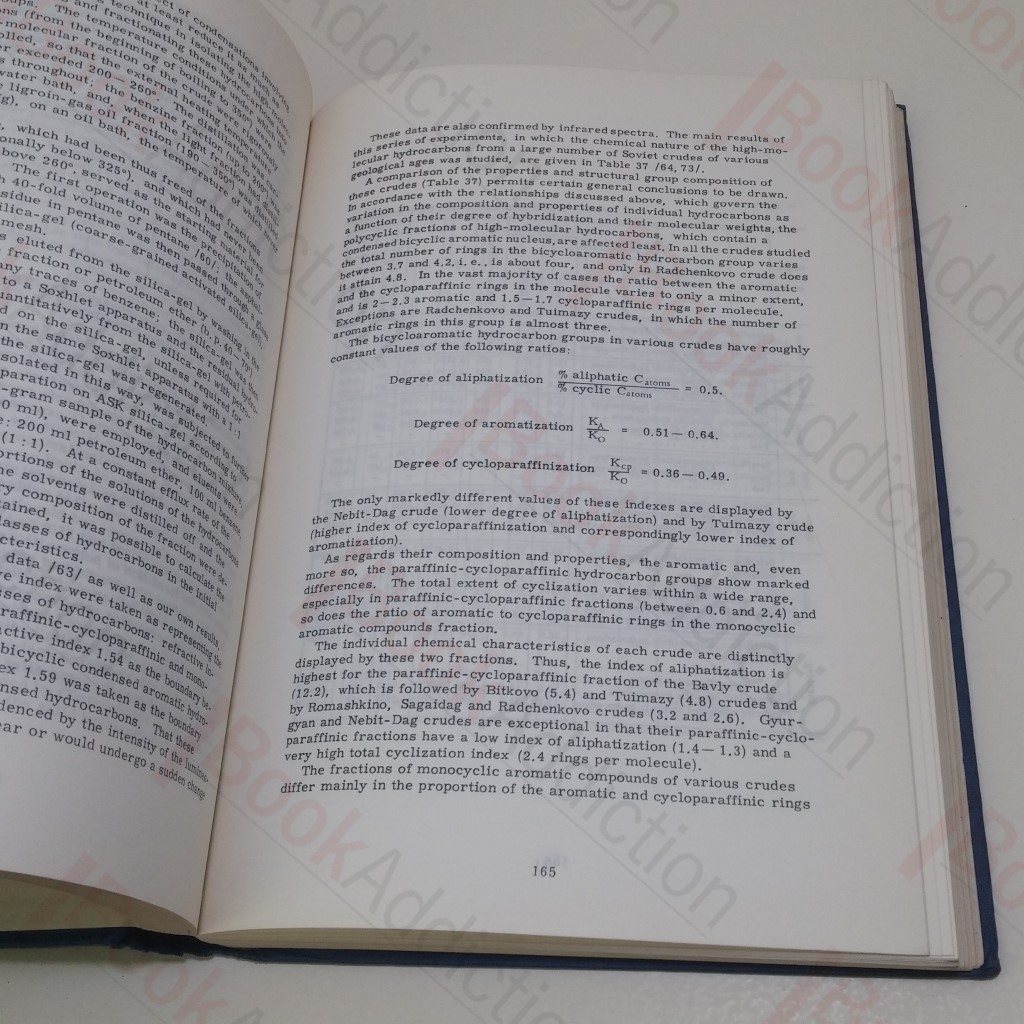 ect of condensations involving
at least reduce it as much as
technique in isolating these high-
ups. The temperature conditions
ns (from the beginning of boiling to 350°) were the
-molecular fraction of the crude were rigorously
olled, so that the external heating temperature
er exceeded 200—260°. The distillation was
s throughout; the benzine fraction (up to 200°)
water bath, and, when the
e ligroin-gas oil fraction (190—350°)
g), on an oil bath, the temperature of which
, which had been thus freed of the fractions
onally below 325°), and which had never been
above 260°, served as the starting material for
The first operation was the precipitation of
h 40-fold volume of pentane /60/; the
sidue in pentane was then passed through a
ilica-gel (coarse-grained activated silica-gel,
mesh.
s eluted from the silica-gel by washing
fraction or petroleum ether (b. p. 40—70°)
any traces of benzene; the silica-gel was then
to a Soxhlet apparatus and the residual hydro-
uantitatively from the silica-gel with petro-
d on the silica-gel, unless required for
n the same Soxhlet apparatus with a 1:1
the silica-gel was regenerated.
solated in this way, was subjected to further
paration on ASK silica-gel according to
-gram sample of the hydrocarbon mixture,
0 ml), were employed, and eluents were
e: 200 ml petroleum ether, 100 ml benzene,
(1 : 1). At a constant efflux rate of the
ortions of the solutions of the hydrocarbons
he solvents were distilled off and the
ry composition of the fraction were de-
tained, it was possible to calculate the
lasses of hydrocarbons in the initial
cteristics.
data /63/ as well as our own results,
ve index were taken as representing the
sses of hydrocarbons: refractive in-
raffinic-cycloparaffinic and mono-
active index 1.54 as the boundary be-
bicyclic condensed aromatic hydro-
ex 1.59 was taken as the boundary
nsed hydrocarbons. That these
denced by the intensity of the lumines-
ear or would undergo a sudden change
These data are also confirmed by infrared spectra. The main results of
this series of experiments, in which the chemical nature of the high-mo-
lecular hydrocarbons from a large number of Soviet crudes of various
geological ages was studied, are given in Table 37 /64, 73/.
A comparison of the properties and structural group composition of
these crudes (Table 37) permits certain general conclusions to be drawn.
In accordance with the relationships discussed above, which govern the
variation in the composition and properties of individual hydrocarbons as
a function of their degree of hybridization and their molecular weights, the
polycyclic fractions of high-molecular hydrocarbons, which contain a
condensed bicyclic aromatic nucleus, are affected least. In all the crudes studied
the total number of rings in the bicycloaromatic hydrocarbon group varies
between 3.7 and 4.2, i. e., is about four, and only in Radchenkovo crude does
it attain 4.8. In the vast majority of cases the ratio between the aromatic
and the cycloparaffinic rings in the molecule varies to only a minor extent,
and is 2—2.3 aromatic and 1.5—1.7 cycloparaffinic rings per molecule.
Exceptions are Radchenkovo and Tuimazy crudes, in which the number of
aromatic rings in this group is almost three.
The bicycloaromatic hydrocarbon groups in various crudes have roughly
constant values of the following ratios:
Degree of aliphatization % aliphatic C atoms / % cyclic C atoms = 0.5.
Degree of aromatization K_A / K_O = 0.51—0.64.
Degree of cycloparaffinization K_cp / K_O = 0.36—0.49.
The only markedly different values of these indexes are displayed by
the Nebit-Dag crude (lower degree of aliphatization) and by Tuimazy crude
(higher index of cycloparaffinization and correspondingly lower index of
aromatization).
As regards their composition and properties, the aromatic and, even
more so, the paraffinic-cycloparaffinic hydrocarbon groups show marked
differences. The total extent of cyclization varies within a wide range,
especially in paraffinic-cycloparaffinic fractions (between 0.6 and 2.4) and
so does the ratio of aromatic to cycloparaffinic rings in the monocyclic
aromatic compounds fraction.
The individual chemical characteristics of each crude are distinctly
displayed by these two fractions. Thus, the index of aliphatization is
highest for the paraffinic-cycloparaffinic fraction of the Bavly crude
(12.2), which is followed by Bitkovo (5.4) and Tuimazy (4.8) crudes and
by Romashkino, Sagaidag and Radchenkovo crudes (3.2 and 2.6). Gyur-
gyan and Nebit-Dag crudes are exceptional in that their paraffinic-cyclo-
paraffinic fractions have a low index of aliphatization (1.4—1.3) and a
very high total cyclization index (2.4 rings per molecule).
The fractions of monocyclic aromatic compounds of various crudes
differ mainly in the proportion of the aromatic and cycloparaffinic rings
165
BookAddiction